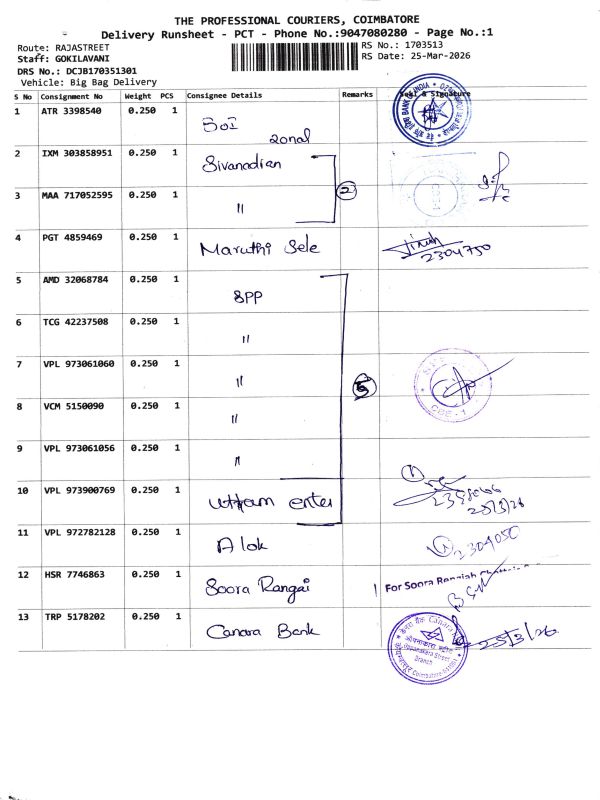 THE PROFESSIONAL COURIERS, COIMBATORE
Delivery Runsheet - PCT - Phone No.:9047080280 - Page No.:1
Route: RAJASTREET
Staff: GOKILAVANI
DRS No.: DCJB170351301
Vehicle: Big Bag Delivery
RS No.: 1703513
RS Date: 25-Mar-2026
S No Consignment No Weight PCS Consignee Details Remarks Seal & Signature
1 ATR 3398540 0.250 1 BOI zonal
2 IXM 303858951 0.250 1 Sivanadian
3 MAA 717052595 0.250 1 〃 2
4 PGT 4859469 0.250 1 Maruthi Sele 2304750
5 AMD 32068784 0.250 1 SPP
6 TCG 42237508 0.250 1 〃
7 VPL 973061060 0.250 1 〃
8 VCM 5150090 0.250 1 〃
CBE - 1
9 VPL 973061056 0.250 1 〃
10 VPL 973900769 0.250 1 Uttam enter 25/3/26
11 VPL 972782128 0.250 1 Alok 2304050
12 HSR 7746863 0.250 1 Soora Rangai For Soora
13 TRP 5178202 0.250 1 Canara Bank 25/3/26
Branch